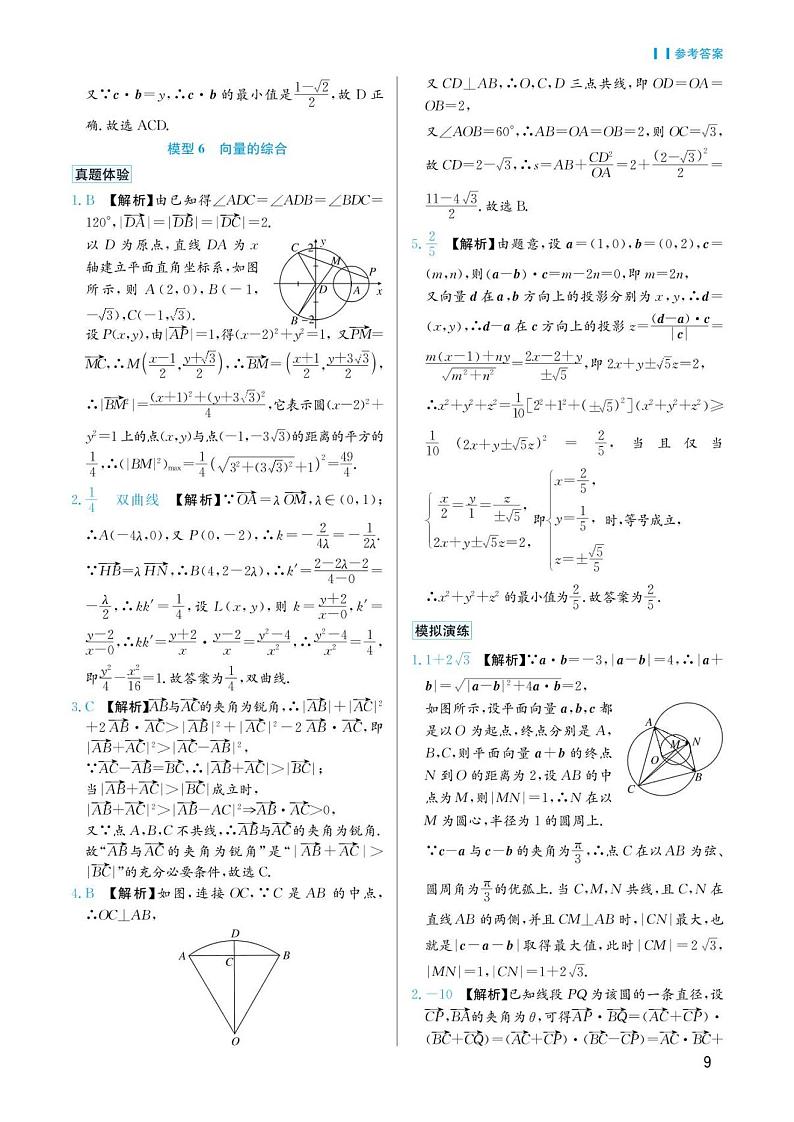 参考答案
又∵c·b=y,∴c·b 的最小值是(1-√2)/2,故 D 正
确.故选 ACD.
模型 6 向量的综合
真题体验
1. B 【解析】由已知得∠ADC=∠ADB=∠BDC=
120°,|DA→|=|DB→|=|DC→|=2.
以 D 为原点,直线 DA 为 x
轴建立平面直角坐标系,如图
所示,则 A(2,0),B(-1,
-√3),C(-1,√3).
C 2 y M P D A x B -2
设 P(x,y),由|AP→|=1,得(x-2)²+y²=1,又PM→=
MC→,∴M((x-1)/2,(y+√3)/2),∴BM→=((x+1)/2,(y+3√3)/2),
∴|BM→²|=((x+1)²+(y+3√3)²)/4,它表示圆(x-2)²+
y²=1上的点(x,y)与点(-1,-3√3)的距离的平方的
1/4,∴(|BM|²)max=1/4(√(3²+(3√3)²)+1)²=49/4.
2. 1/4 双曲线 【解析】∵OA→=λOM→,λ∈(0,1);
∴A(-4λ,0),又 P(0,-2),∴k=-2/(4λ)=-1/(2λ).
∵HB→=λHN→,∴B(4,2-2λ),∴k′=(2-2λ-2)/(4-0)=
-λ/2,∴kk′=1/4,设 L(x,y),则 k=(y+2)/(x-0),k′=
(y-2)/(x-0),∴kk′=(y+2)/x·(y-2)/x=(y²-4)/x²,∴(y²-4)/x²=1/4,
即y²/4-x²/16=1.故答案为1/4,双曲线.
3. C 【解析】AB→与AC→的夹角为锐角,∴|AB→|+|AC→|²
+2AB→·AC→>|AB→|²+|AC→|²-2AB→·AC→,即
|AB→+AC→|²>|AC→-AB→|²,
∵AC→-AB→=BC→,∴|AB→+AC→|>|BC→|;
当|AB→+AC→|>|BC→|成立时,
|AB→+AC→|²>|AB→-AC|²⇒AB→·AC→>0,
又∵点 A,B,C 不共线,∴AB→与AC→的夹角为锐角.
故“AB→与AC→的夹角为锐角”是“|AB→+AC→|>
|BC→|”的充分必要条件,故选 C.
4. B 【解析】如图,连接 OC,∵C 是 AB 的中点,
∴OC⊥AB,
D A C B O
又 CD⊥AB,∴O,C,D 三点共线,即 OD=OA=
OB=2,
又∠AOB=60°,∴AB=OA=OB=2,则 OC=√3,
故 CD=2-√3,∴s=AB+CD²/OA=2+(2-√3)²/2=
(11-4√3)/2.故选 B.
5. 2/5 【解析】由题意,设 a=(1,0),b=(0,2),c=
(m,n),则(a-b)·c=m-2n=0,即 m=2n,
又向量 d 在 a,b 方向上的投影分别为 x,y,∴d=
(x,y),∴d-a 在 c 方向上的投影 z=((d-a)·c)/|c|=
(m(x-1)+ny)/√(m²+n²)=(2x-2+y)/(±√5),即 2x+y±√5z=2,
∴x²+y²+z²=1/10[2²+1²+(±√5)²](x²+y²+z²)≥
1/10(2x+y±√5z)²=2/5,当且仅当
{x/2=y/1=z/(±√5), 2x+y±√5z=2, 即{x=2/5, y=1/5, z=±√5/5 时,等号成立,
∴x²+y²+z² 的最小值为2/5.故答案为2/5.
模拟演练
1. 1+2√3 【解析】∵a·b=-3,|a-b|=4,∴|a+
b|=√(|a-b|²+4a·b)=2,
如图所示,设平面向量 a,b,c 都
是以 O 为起点,终点分别是 A,
B,C,则平面向量 a+b 的终点
N 到 O 的距离为 2,设 AB 的中
点为 M,则|MN|=1,∴N 在以
M 为圆心,半径为 1 的圆周上.
A M N O B C
∵c-a 与 c-b 的夹角为π/3,∴点 C 在以 AB 为弦、
圆周角为π/3的优弧上.当 C,M,N 共线,且 C,N 在
直线 AB 的两侧,并且 CM⊥AB 时,|CN|最大,也
就是|c-a-b|取得最大值,此时|CM|=2√3,
|MN|=1,|CN|=1+2√3.
2. -10 【解析】已知线段 PQ 为该圆的一条直径,设
CP→,BA→的夹角为 θ,可得AP→·BQ→=(AC→+CP→)·
(BC→+CQ→)=(AC→+CP→)·(BC→-CP→)=AC→·BC→+
9